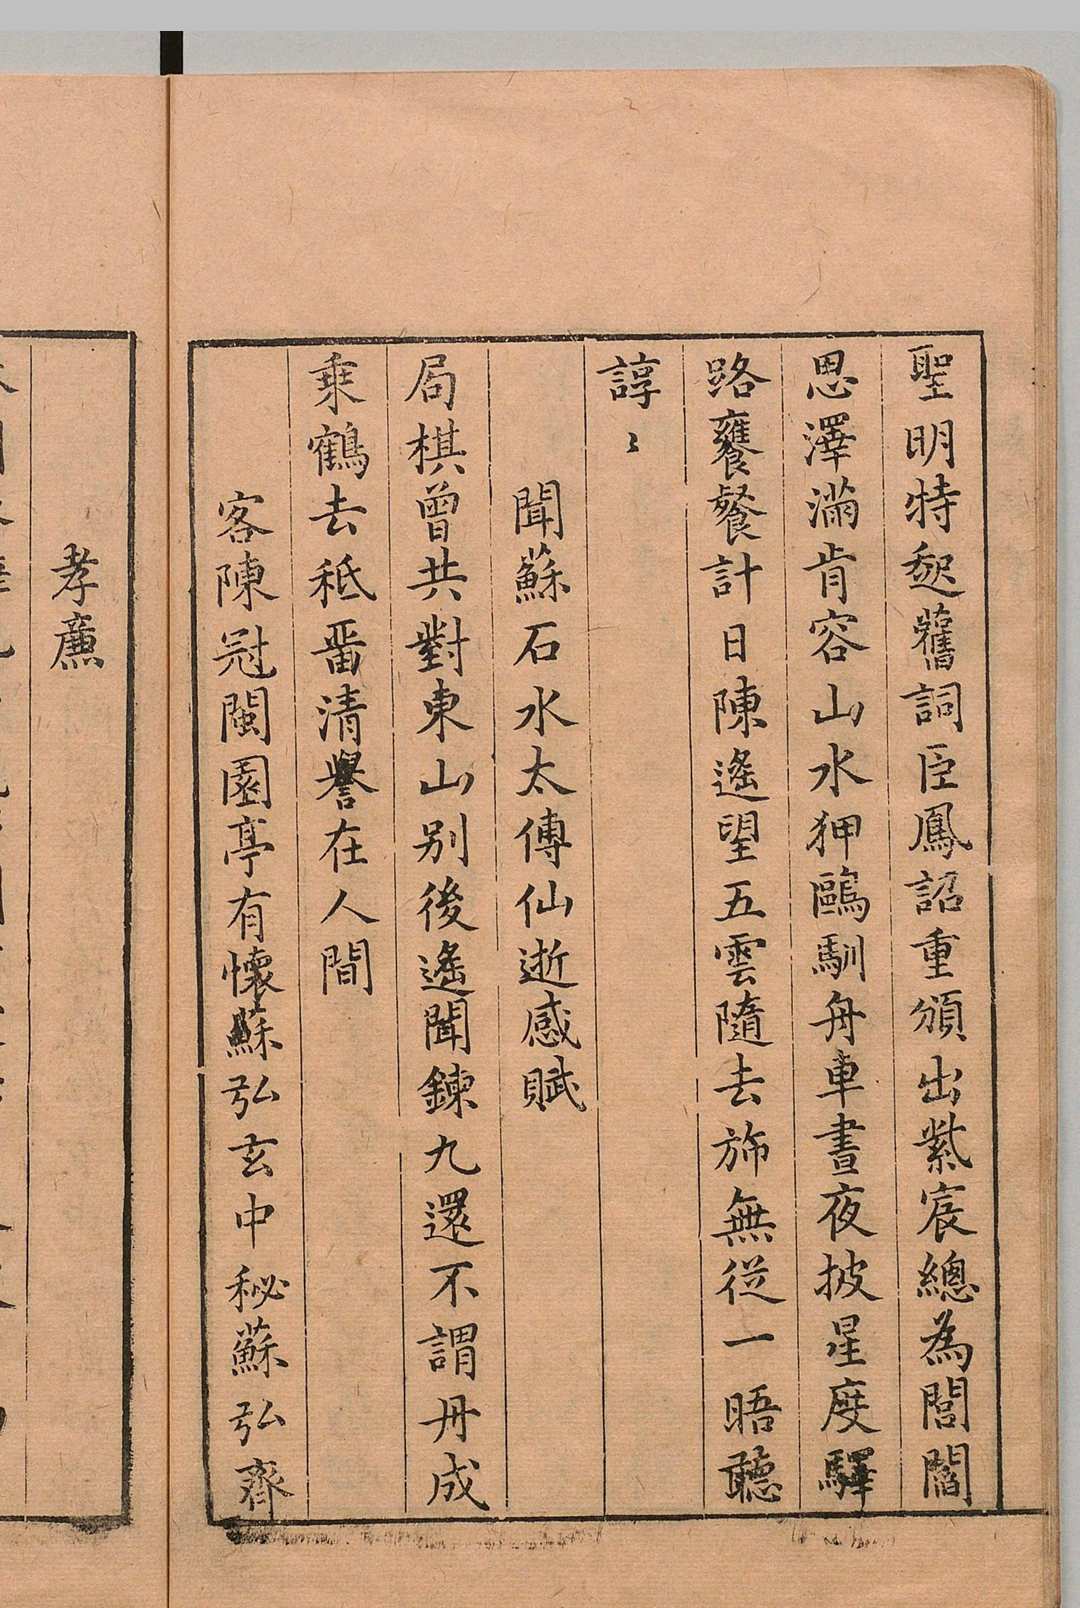 聖明特起舊詞臣鳳詔重頒出紫宸總為閭閻
思澤滿肯容山水狎鷗馴舟車晝夜披星度驛
路饔餐計日陳遙望五雲隨去斾無從一晤聽
諄〻
聞蘇石水太傅仙逝感賦
局棋曾共對東山別後遙聞鍊九還不謂丹成
乗鶴去秪畱清譽在人間
客陳冠閩園亭有懷蘇弘玄中秘蘇弘齊
孝廉